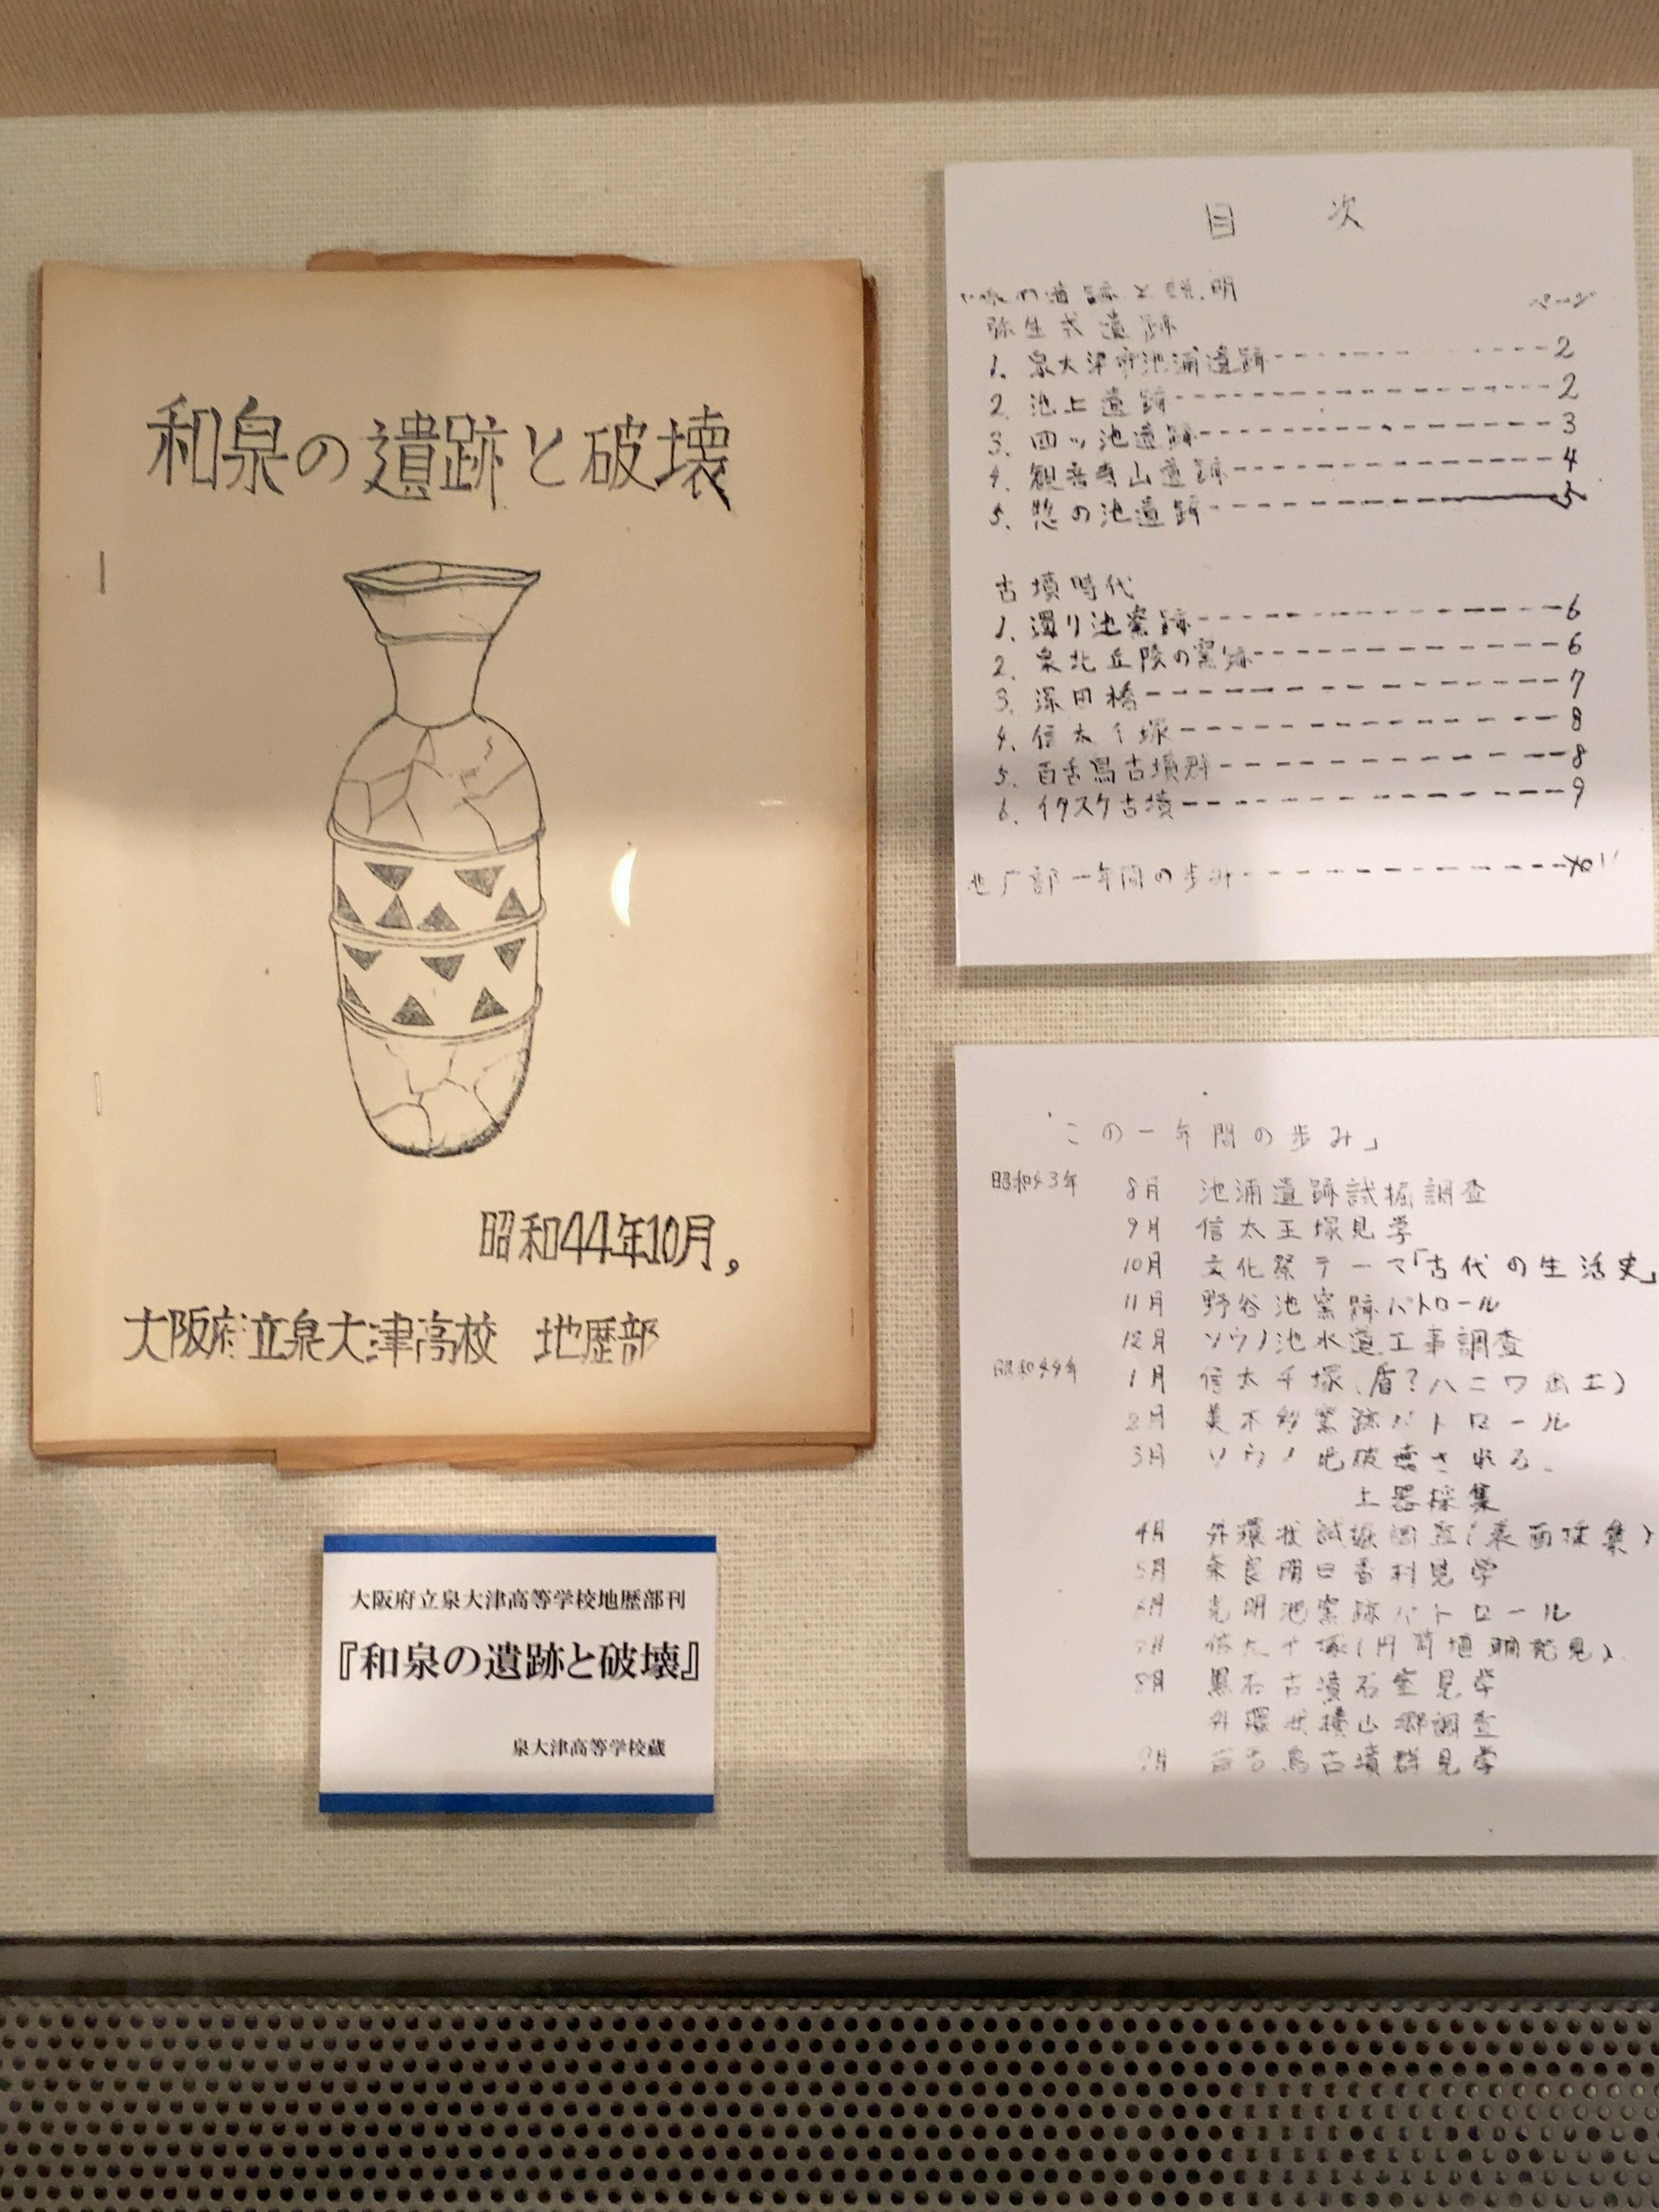 和泉の遺跡と破壊
昭和44年10月,
大阪府立泉大津高校 地歴部
大阪府立泉大津高等学校地歴部刊
『和泉の遺跡と破壊』
泉大津高等学校蔵
目次
の遺跡と説明
ページ
弥生式遺跡
1. 泉大津市池浦遺跡 2
2. 池上遺跡 2
3. 四ッ池遺跡 3
4. 観音寺山遺跡 4
5. 惣の池遺跡 5
古墳時代
1. 濁り池窯跡 6
2. 泉北丘陵の窯跡 6
3. 深田橋 7
4. 信太千塚 8
5. 百舌鳥古墳群 8
6. イタスケ古墳 9
部一年間の歩み
「この一年間の歩み」
昭和43年 8月 池浦遺跡試掘調査
9月 信太王塚見学
10月 文化祭テーマ「古代の生活史」
11月 野谷池窯跡パトロール
12月 ソウノ池水道工事調査
昭和44年 1月 信太千塚(盾?ハニワ出土)
2月 美木多窯跡パトロール
3月 ソウノ池破壊される、
土器採集
4月 外環状試掘調査(表面採集)
5月 奈良明日香村見学
6月 光明池窯跡パトロール
7月 信太千塚(円筒埴輪発見)
8月 黒石古墳石室見学
外環状横山郷調査
9月 百舌鳥古墳群見学